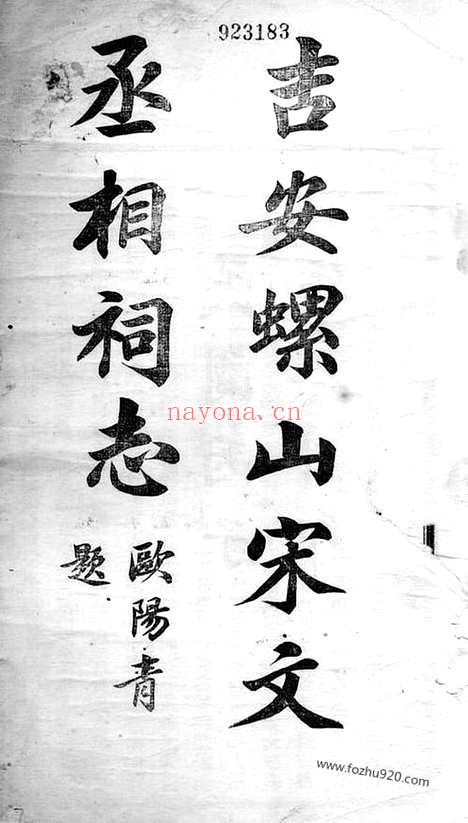 923183
吉安螺山宋文
丞相祠志
歐陽青
題
nayona.cn
www.fozhu920.com